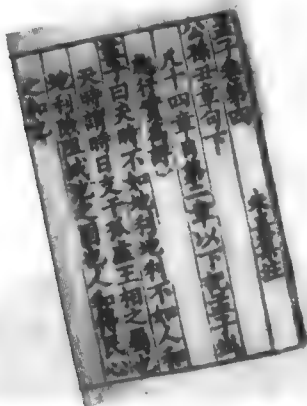 孟子卷第四
朱熹集註
公孫丑章句下
凡十四章自第二章以下記孟子出
處行實爲詳
孟子曰天時不如地利地利不如人和
天時謂時日支干孤虛王相之屬也
地利險阻城池之固也人和得民心
之和也